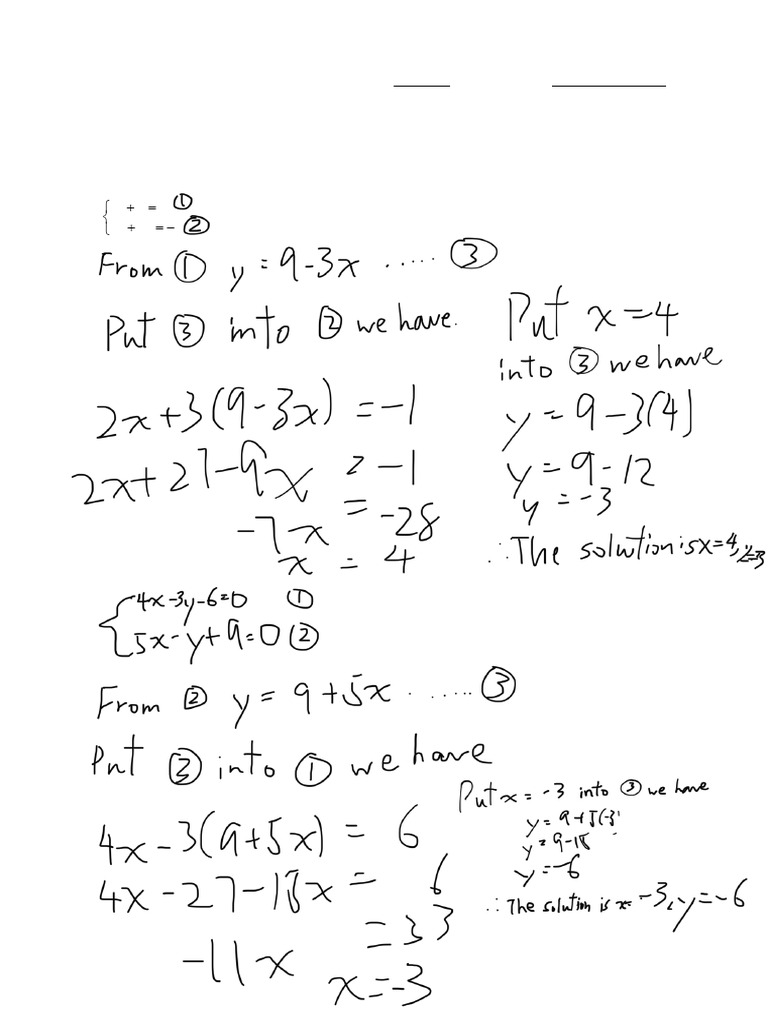 { + = ①
+ =- ②
From ① y=9-3x ..... ③
Put ③ into ② we have.
2x+3(9-3x) =-1
2x+27-9x =-1
-7x = -28
x = 4
Put x=4
into ③ we have
y=9-3(4)
y=9-12
y=-3
∴The solution is x=4, y=-3
{ 4x-3y-6=0 ①
5x-y+9=0 ②
From ② y=9+5x ...... ③
Put ③ into ① we have
4x-3(9+5x) = 6
4x-27-15x = 6
-11x =33
x=-3
Put x=-3 into ③ we have
y=9+5(-3)
y=9-15
y=-6
∴The solution is x=-3, y=-6